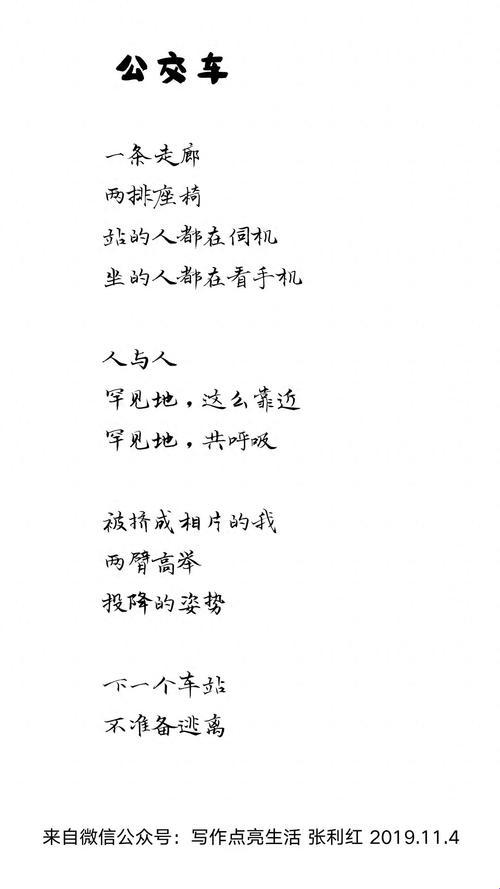 公交车
一条走廊
两排座椅
站的人都在伺机
坐的人都在看手机
人与人
罕见地，这么靠近
罕见地，共呼吸
被挤成相片的我
两臂高举
投降的姿势
下一个车站
不准备逃离
来自微信公众号：写作点亮生活 张利红 2019.11.4